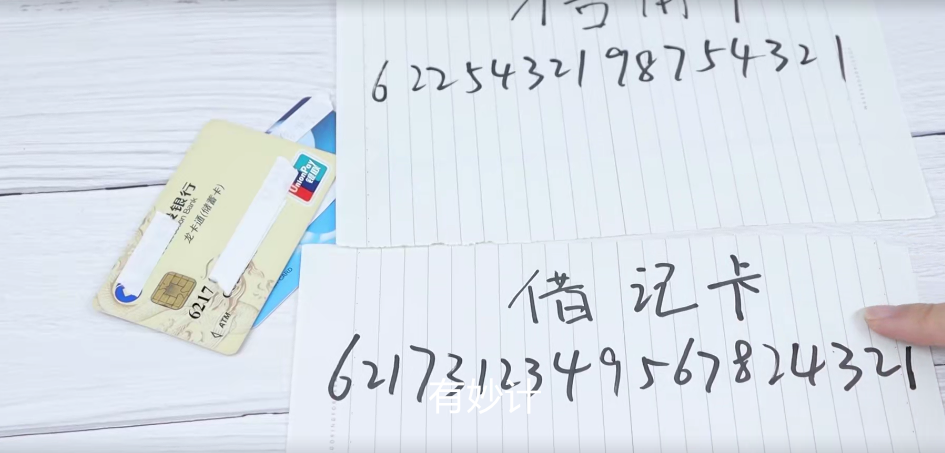 6225432198754321
银行
on Bank
龙卡通(储蓄卡)
UnionPay
银联
6217
ATM
借记卡
6217212349567824321
有妙计